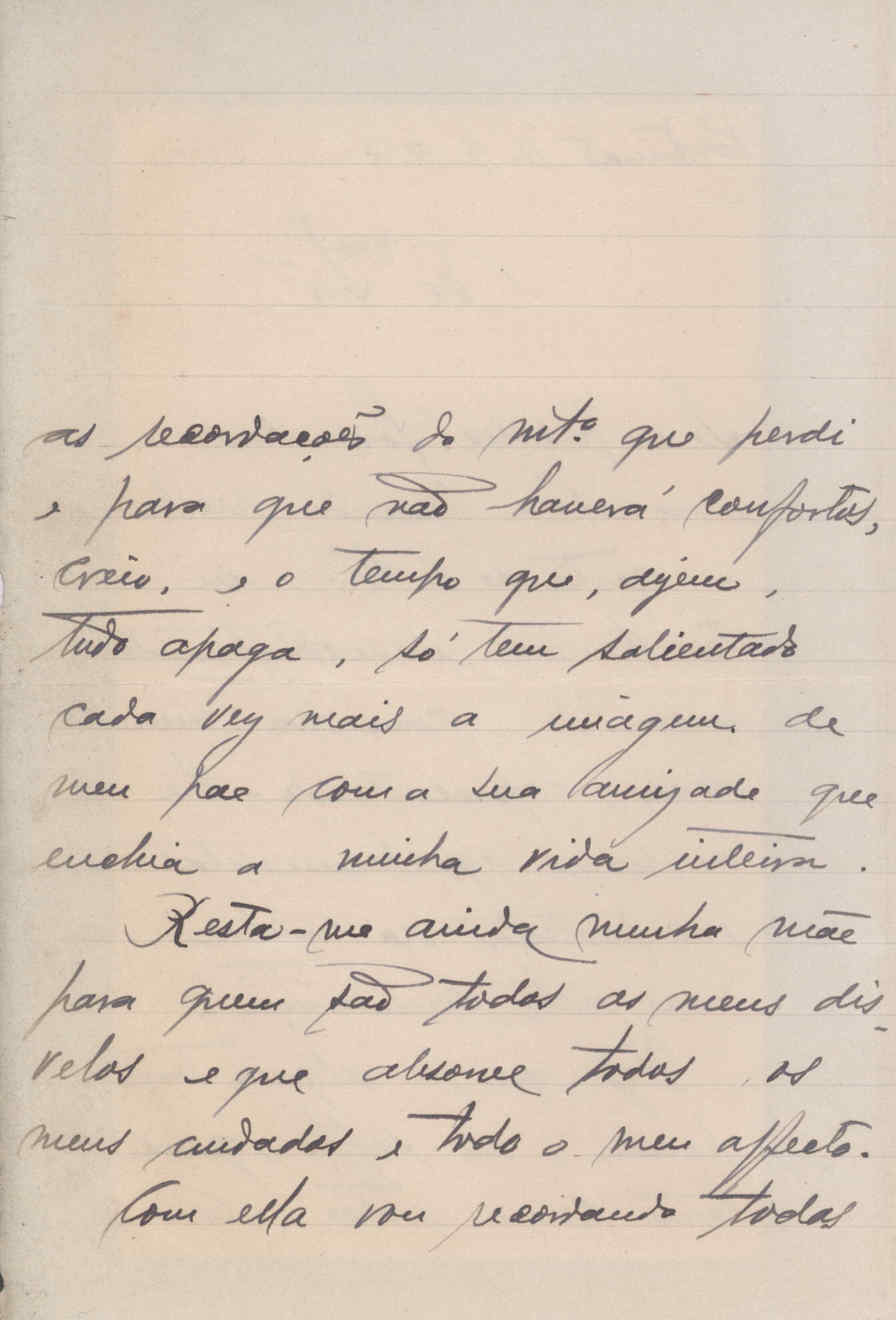 as recordações do mt.º que perdi
e para que não haverá confortos,
creio, e o tempo que, dizem,
tudo apaga, só tem salientado
cada vez mais a imagem de
meu pae com a sua amizade que
enchia a minha vida inteira.
Resta-me ainda minha mãe
para quem são todos os meus dis-
velos e que absorve todos os
meus cuidados e todo o meu affecto.
Com ella vou recordando todas